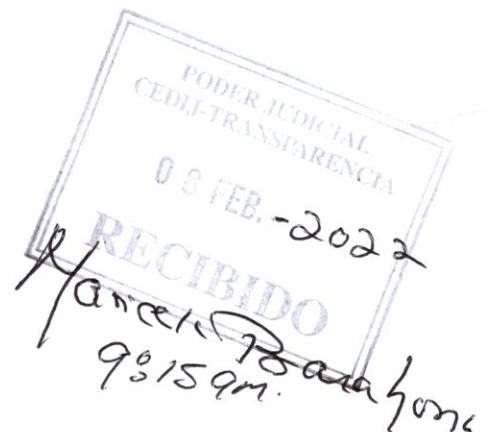 PODER JUDICIAL
CEDIJ-TRANSPARENCIA
FEB.-2022
RECIBIDO
Maricela Barahona
9:15 am.